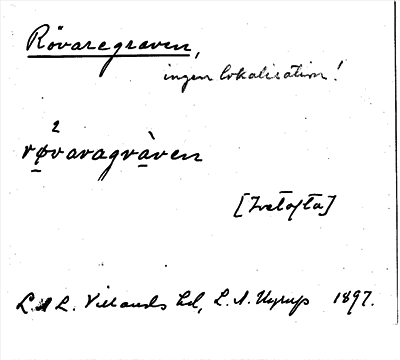 Rövaregraven,
ingen lokalisation!
2
rø̱varagrà̱ven
[Ivetofta]
L. A L. Villands hd, L. A. Kyrup 1897.